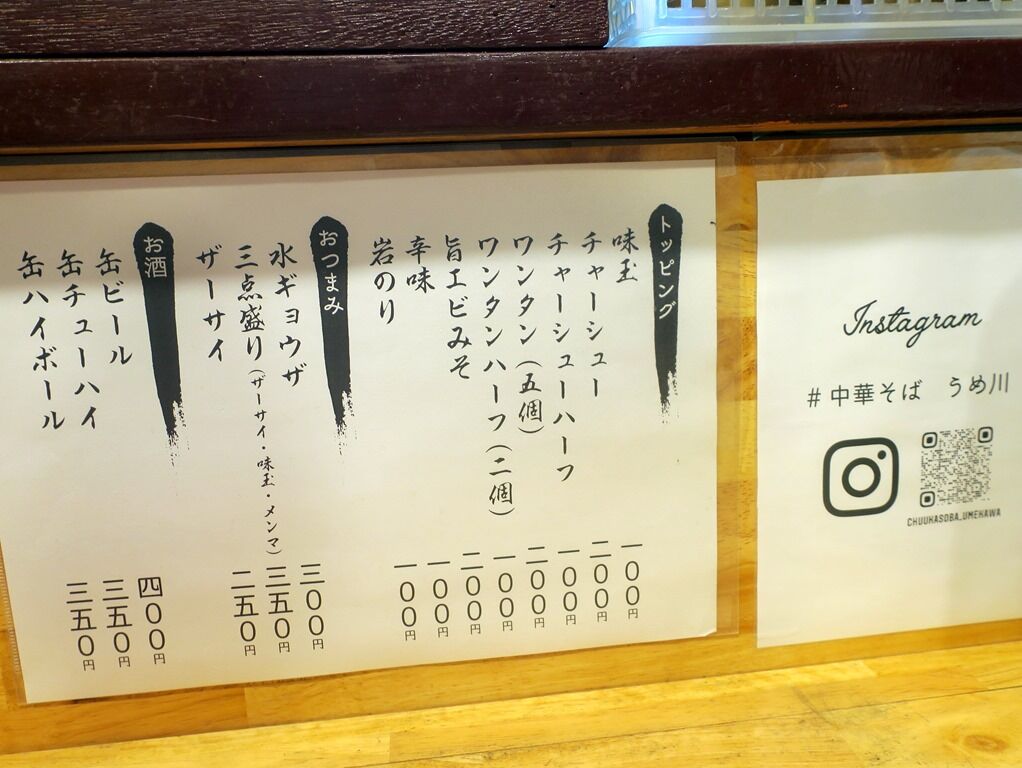 トッピング
味玉 一〇〇円
チャーシュー 二〇〇円
チャーシューハーフ 一〇〇円
ワンタン（五個） 二〇〇円
ワンタンハーフ（二個） 一〇〇円
旨エビみそ 二〇〇円
辛味 一〇〇円
岩のり 一〇〇円
おつまみ
水ギョウザ 三〇〇円
三点盛り（ザーサイ・味玉・メンマ） 三五〇円
ザーサイ 二五〇円
お酒
缶ビール 四〇〇円
缶チューハイ 三五〇円
缶ハイボール 三五〇円
Instagram
#中華そば うめ川
CHUUKASOBA_UMEKAWA